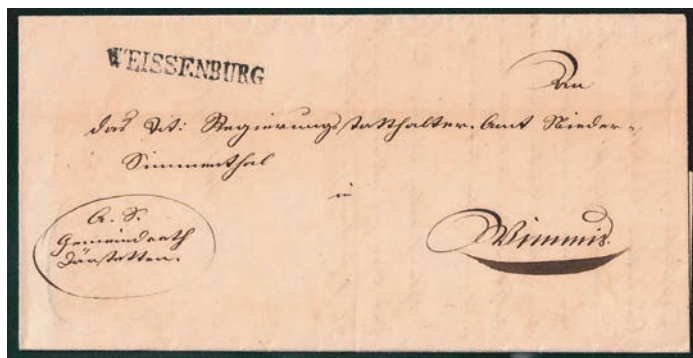 WEISSENBURG
An
das Tit: Regierungsstatthalter-Amt Nieder-
Simmenthal
in
Wimmis.
A. S.
Gemeindrath
Därstetten.